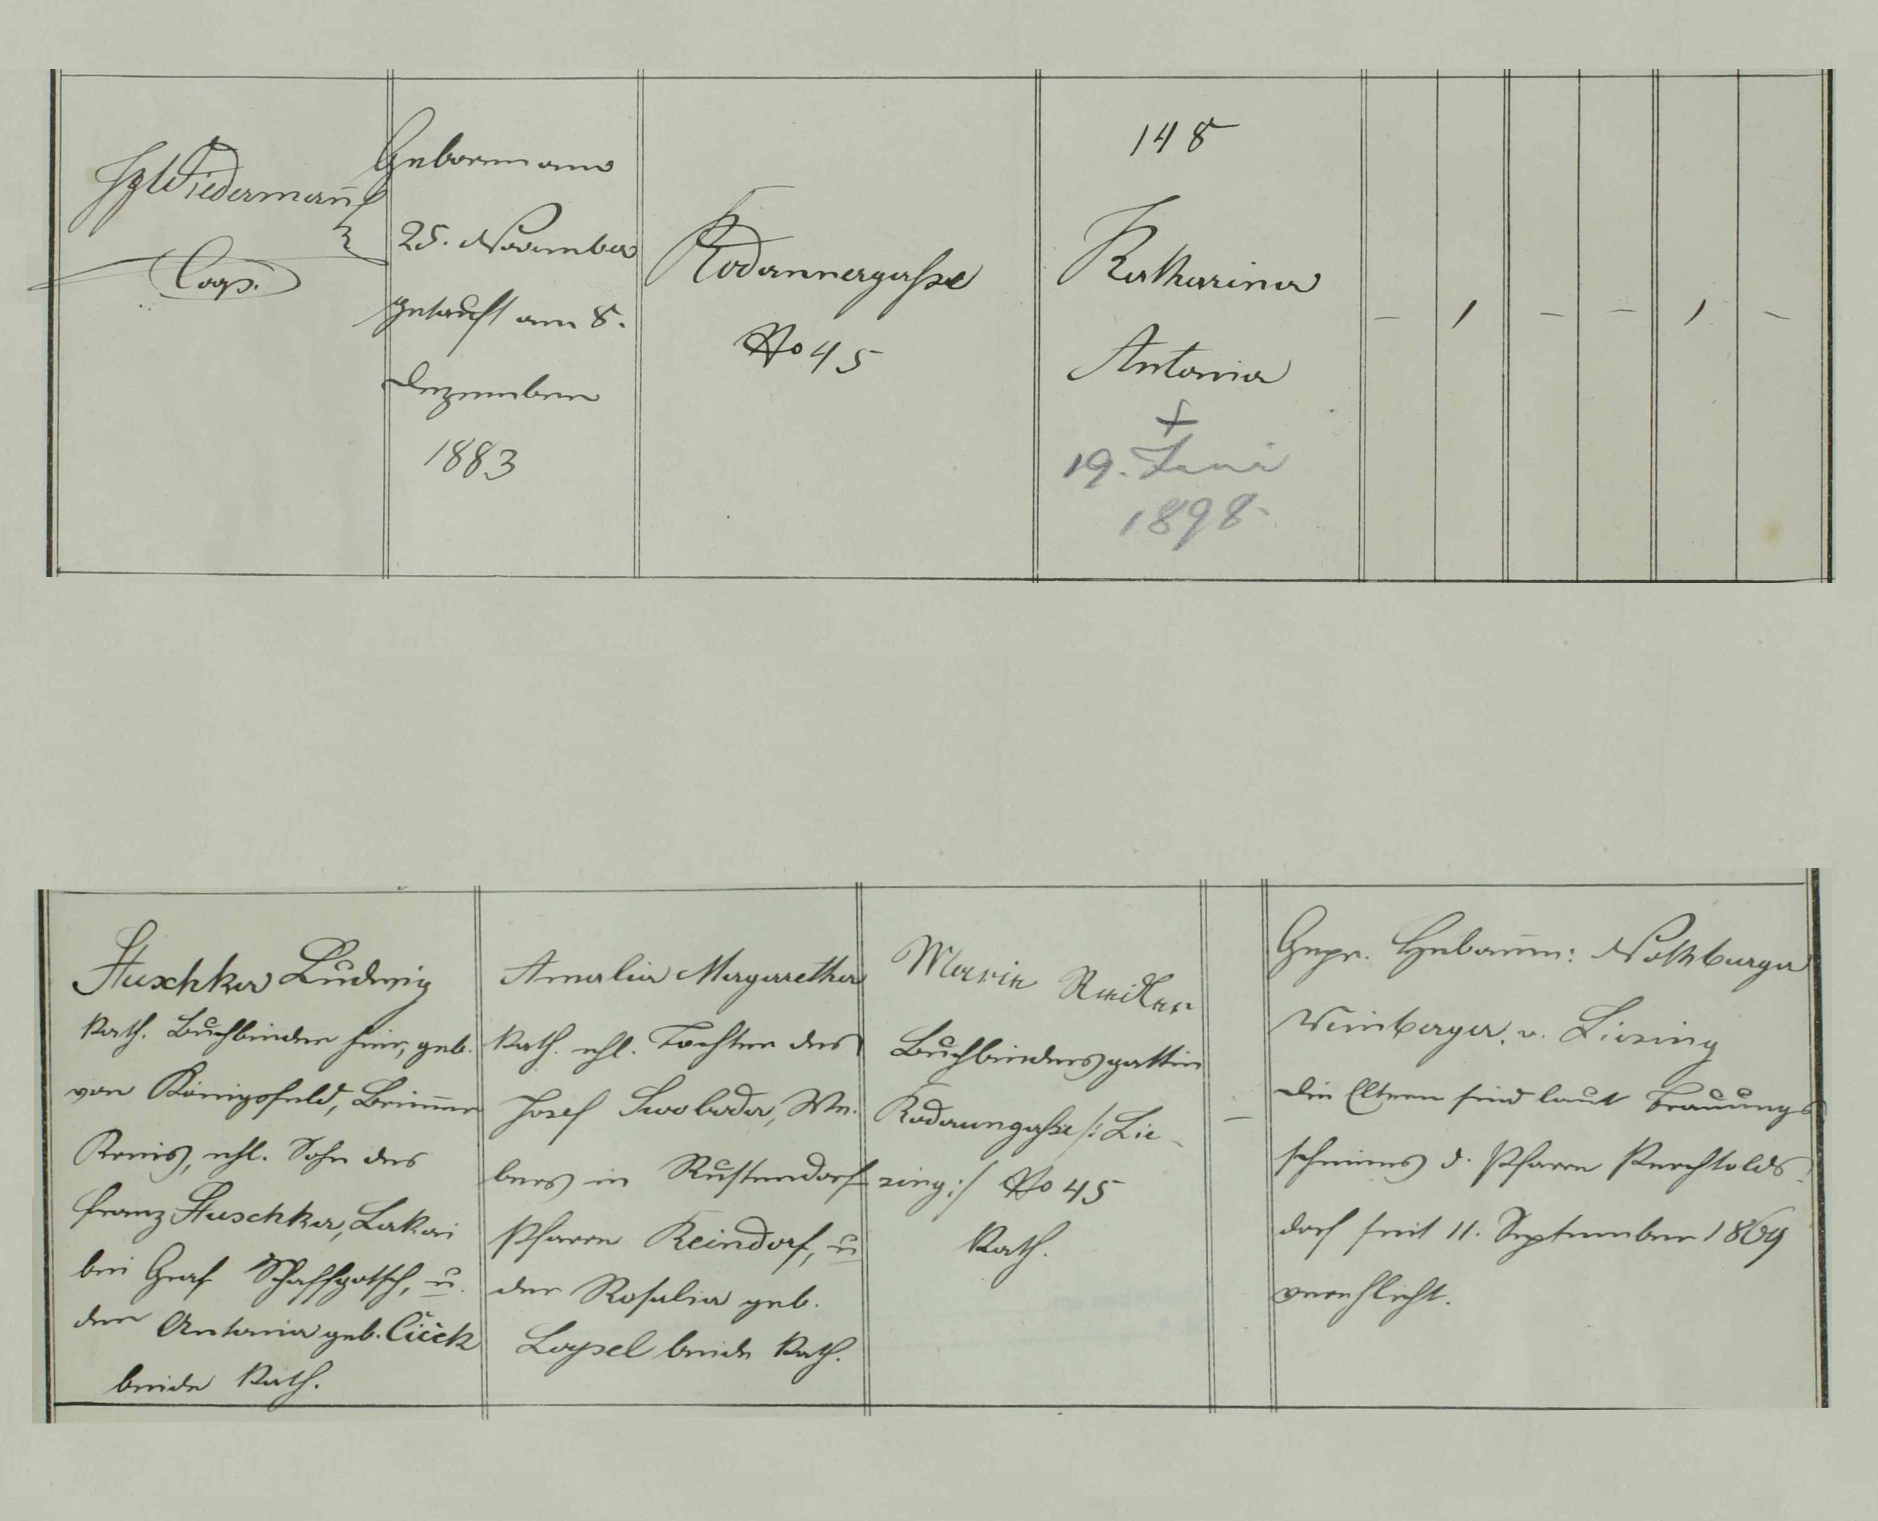 Wiedermann
Coop.
Geboren am
25. November
getauft am 8.
Dezember
1883
Rodaunnergasse
No 45
148
Katharina
Antonia
+
19. Juni
1898
- 1 - - 1 -
Huschka Ludwig
kath. Buchbinder hier, geb.
von Königsfeld, Brünner
Kreis, ehl. Sohn des
Franz Huschka, Lakai
bei Graf Schaffgotsch, u.
der Antonia geb. Čiček
beide kath.
Amalia Margaretha
kath. ehl. Tochter des
Josef Swoboda, We-
bers in Rustendorf
Pfarre Reindorf, u
der Rosalia geb.
beide kath.
Maria
Buchbindersgattin
Rodaungasse /: Lie-
sing :/ No 45
Kath.
-
Gepr. Hebamm: Nothburga
Weinberger. v. Liesing
Die Eltern sind laut Trauungs
scheines d. Pfarre Perchtolds-
dorf seit 11. September 1869
verehlicht.